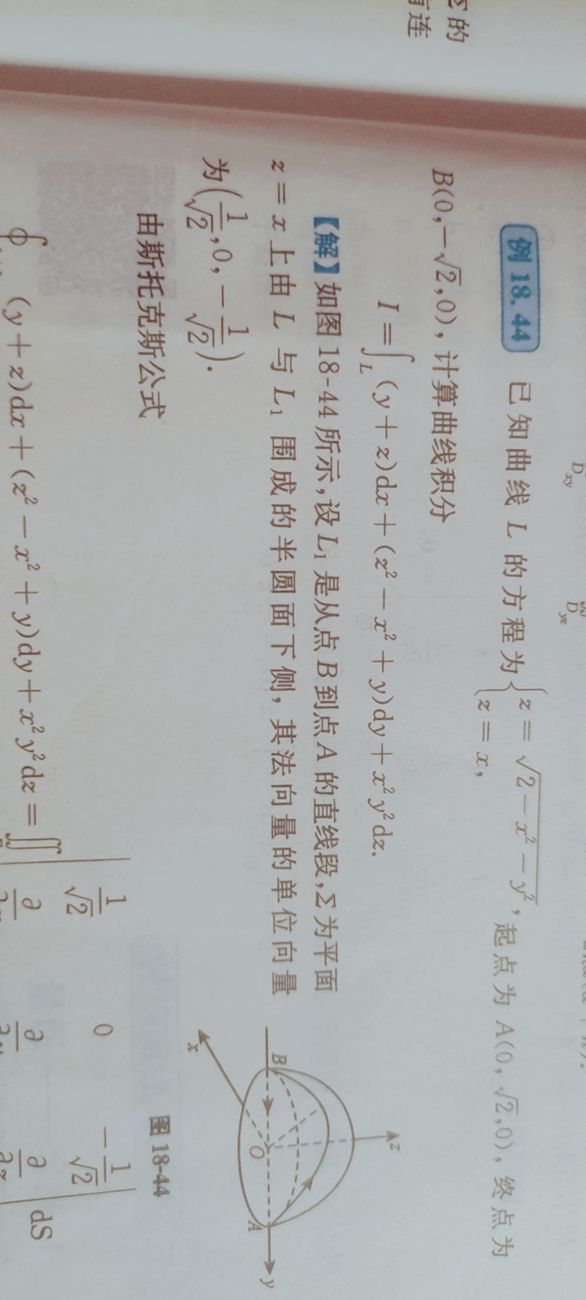 Σ的
连
D_{xy} D_{yz}
例 18.44 已知曲线 L 的方程为 { z = √(2 − x² − y²), z = x, 起点为 A(0, √2, 0), 终点为
B(0, −√2, 0), 计算曲线积分
I = ∫_L (y + z)dx + (z² − x² + y)dy + x²y²dz.
【解】如图 18-44 所示, 设 L₁ 是从点 B 到点 A 的直线段, Σ 为平面
z = x 上由 L 与 L₁ 围成的半圆面下侧, 其法向量的单位向量
为 (1/√2, 0, −1/√2).
z
B
O
A
y
x
图 18-44
由斯托克斯公式
∮ (y + z)dx + (z² − x² + y)dy + x²y²dz = ∬ | 1/√2 0 −1/√2 | dS
∂ ∂ ∂